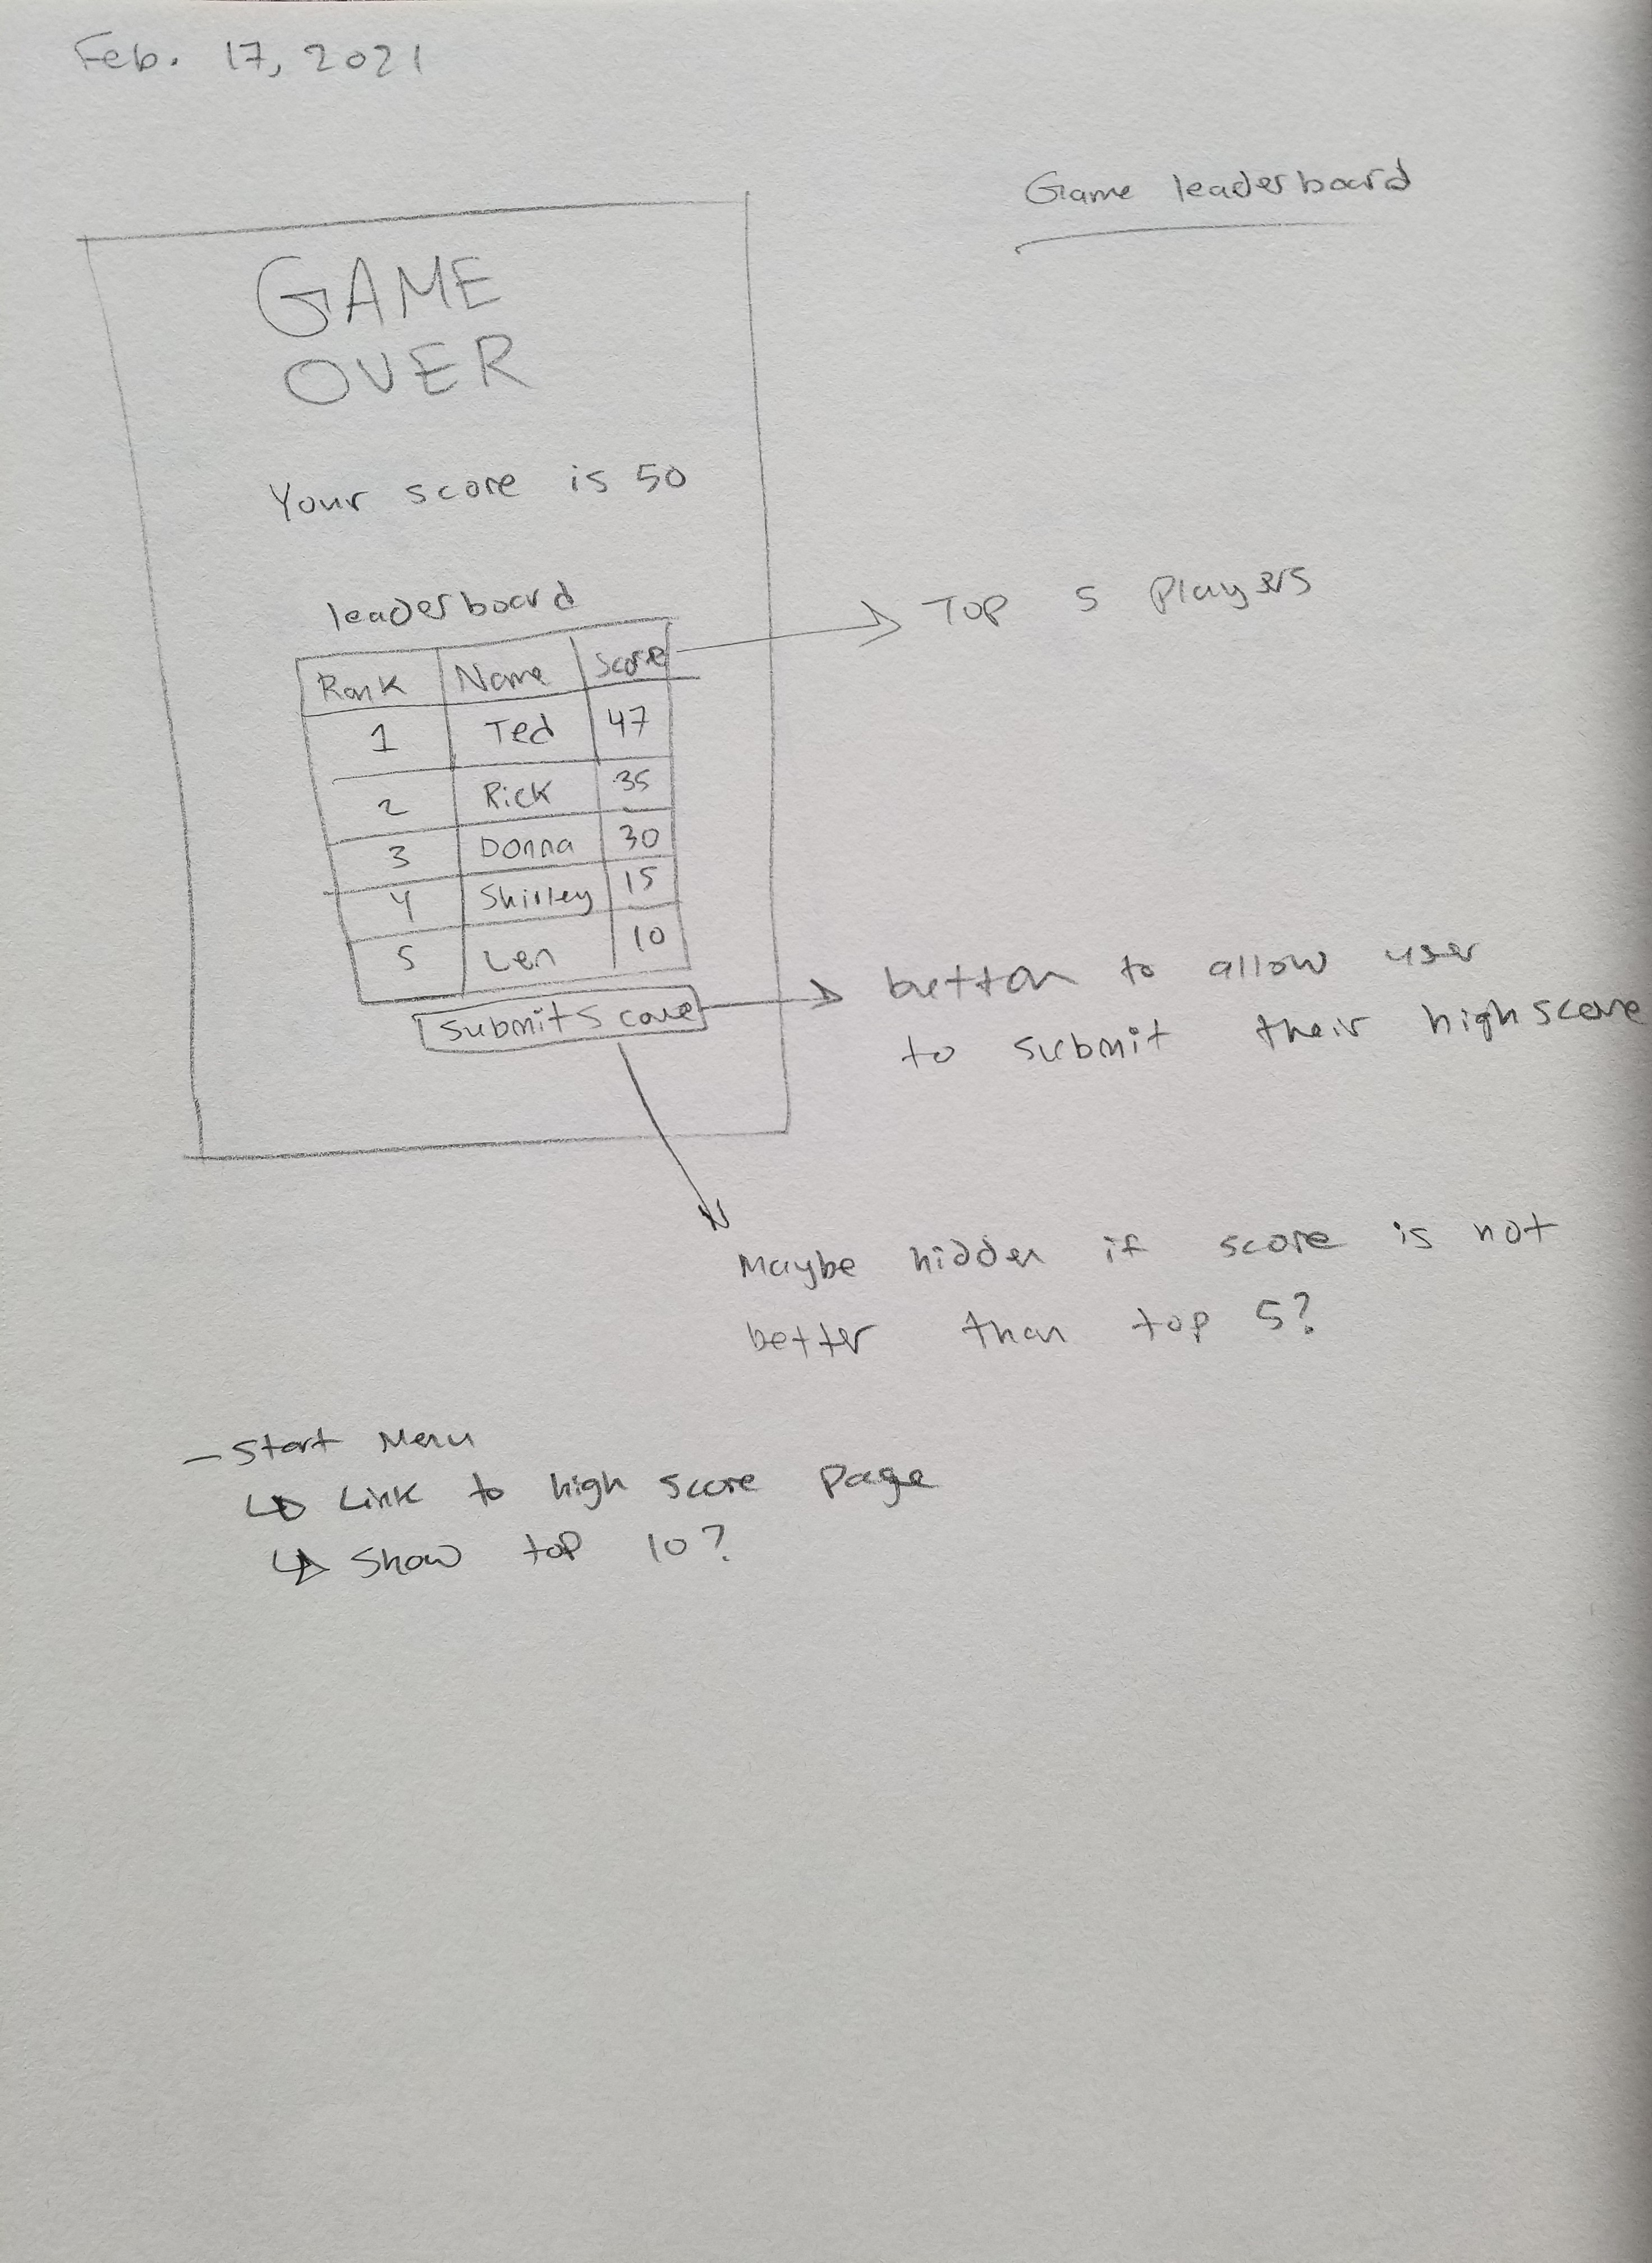 Feb. 17, 2021
Game leaderboard
GAME
OVER
Your score is 50
leaderboard
Rank Name Score
1 Ted 47
2 Rick 35
3 Donna 30
4 Shirley 15
5 Len 10
Submit Score
Top 5 Players
button to allow user
to submit their highscore
Maybe hidden if score is not
better than top 5?
- Start Menu
↳ Link to high score page
↳ Show top 10?